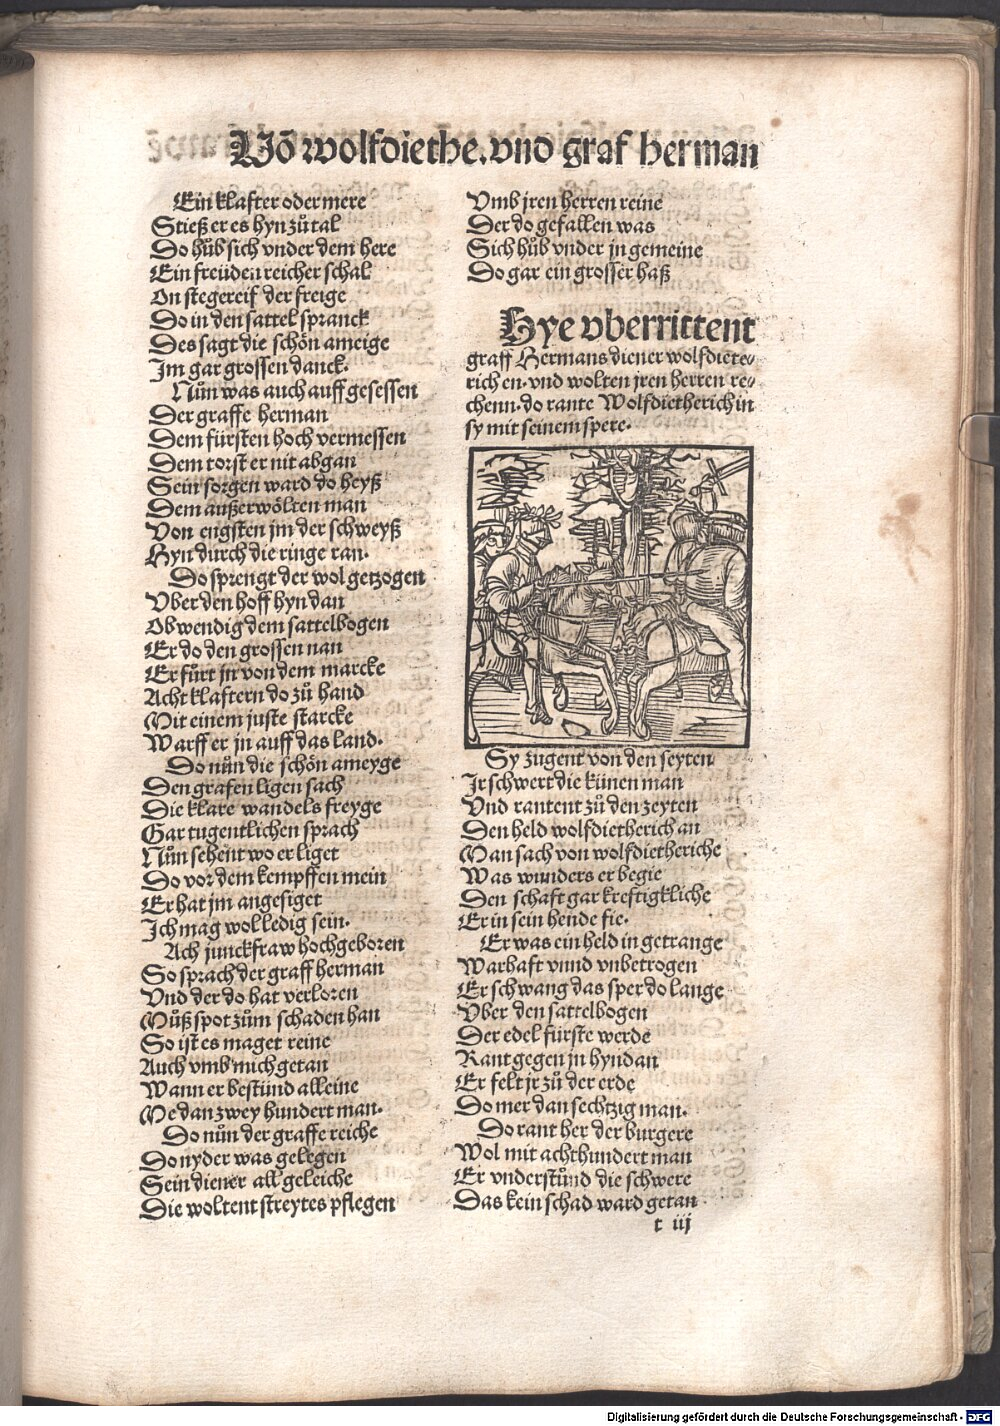 Võ wolfdiethe. vnd graf herman
Ein klafter oder mere
Stieß er es hyn zů tal
Do hůb sich vnder dem here
Ein freüden reicher schal
On stegereif der freige
Do in den sattel spranck
Des sagt die schön ameige
Im gar grossen danck.
Nůn was auch auff gesessen
Der graffe herman
Dem fürsten hoch vermessen
Dem torst er nit abgan
Sein sorgen ward do heyß
Dem außerwölten man
Von engsten jm der schweyß
Hyn durch die ringe ran.
Do sprengt der wol getzogen
Vber den hoff hyn dan
Ob wendig dem sattelbogen
Er do den grossen nan
Er fůrt jn von dem marcke
Acht klaftern do zů hand
Mit einem juste starcke
Warff er jn auff das land.
Do nůn die schön ameyge
Den grafen ligen sach
Die klare wandels freyge
Gar tugentlichen sprach
Nůn sehent wo er liget
Do vor dem kempffen mein
Er hat jm angesiget
Ich mag wol ledig sein.
Ach junckfraw hochgeboren
So sprach der graff herman
Vnd der do hat verloren
Můß spot zům schaden han
So ist es maget reine
Auch vmb mich getan
Wann er bestůnd alleine
Me dan zwey hundert man.
Do nůn der graffe reiche
Do nyder was gelegen
Sein diener all geleiche
Die woltent streytes pflegen
Vmb jren herren reine
Der do gefallen was
Sich hůb vnder jn gemeine
Do gar ein grosser haß
Hye vberrittent
graff Hermans diener wolfdiete-
rich en. vnd wolten jren herren re-
chenn. do rante Wolfdietherich in
sy mit seinem spere.
Sy zugent von den seyten
Ir schwert die künen man
Vnd rantent zů den zeyten
Den held wolfdietherich an
Man sach von wolfdietheriche
Was wunders er begie
Den schaft gar kreftigkliche
Er in sein hende fie.
Er was ein held in getrange
Warhaft vnnd vnbetrogen
Er schwang das sper do lange
Vber den sattelbogen
Der edel fürste werde
Rant gegen jn hyndan
Er felt jr zů der erde
Do mer dan sechtzig man.
Do rant her der burgere
Wol mit achthundert man
Er vnderstůnd die schwere
Das kein schad ward getan
t iij
Digitalisierung gefördert durch die Deutsche Forschungsgemeinschaft - DFG